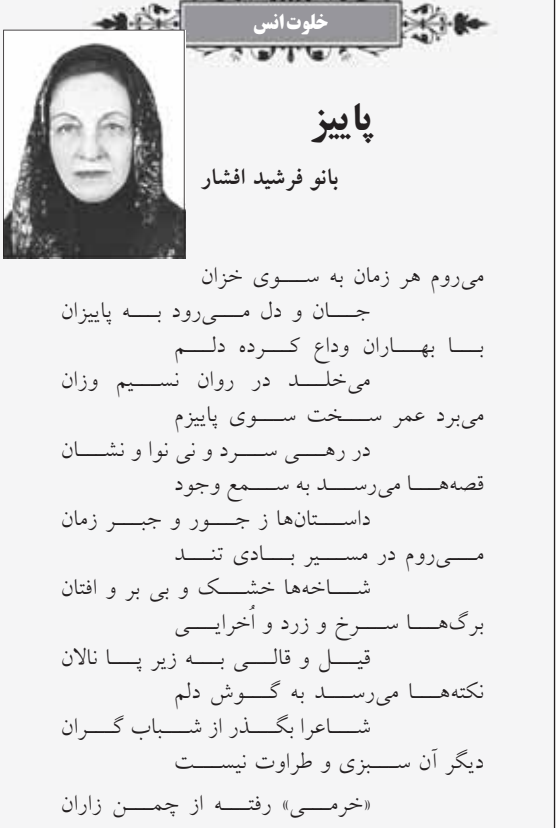 خلوت‌انس
پاییز
بانو فرشید افشار
می‌روم هر زمان به سوی خزان
جان و دل می‌رود به پاییزان
با بهاران وداع کرده دلم
می‌خلد در روان نسیم وزان
می‌برد عمر سخت سوی پاییزم
در رهی سرد و نی نوا و نشان
قصه‌ها می‌رسد به سمع وجود
داستان‌ها ز جور و جبر زمان
می‌روم در مسیر بادی تند
شاخه‌ها خشک و بی بر و افتان
برگ‌ها سرخ و زرد و اُخرایی
قیل و قالی به زیر پا نالان
نکته‌ها می‌رسد به گوش دلم
شاعرا بگذر از شباب گران
دیگر آن سبزی و طراوت نیست
«خرمی» رفته از چمن زاران